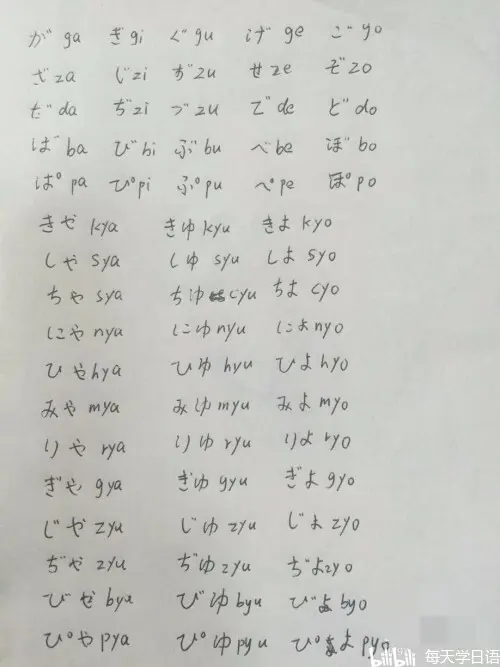 が ga ぎ gi ぐ gu げ ge ご yo
ざ za じ zi ず zu せ ze ぞ zo
だ da ぢ zi づ zu で de ど do
ば ba び bi ぶ bu べ be ぼ bo
ぱ pa ぴ pi ぷ pu ぺ pe ぽ po
きや kya きゆ kyu きよ kyo
しゃ sya しゅ syu しよ syo
ちゃ sya ちゆ cyu ちよ cyo
にゃ nya にゆ nyu によ nyo
ひや hya ひゆ hyu ひよ hyo
みや mya みゆ myu みよ myo
りや rya りゆ ryu りよ ryo
ぎや gya ぎゆ gyu ぎよ gyo
じや zyu じゆ zyu じよ zyo
ぢや zyu ぢゆ zyu ぢよ zyo
びぜ bya びゆ byu びよ byo
ぴや pya ぴゆ pyu ぴよ pyo
bilibili 每天学日语